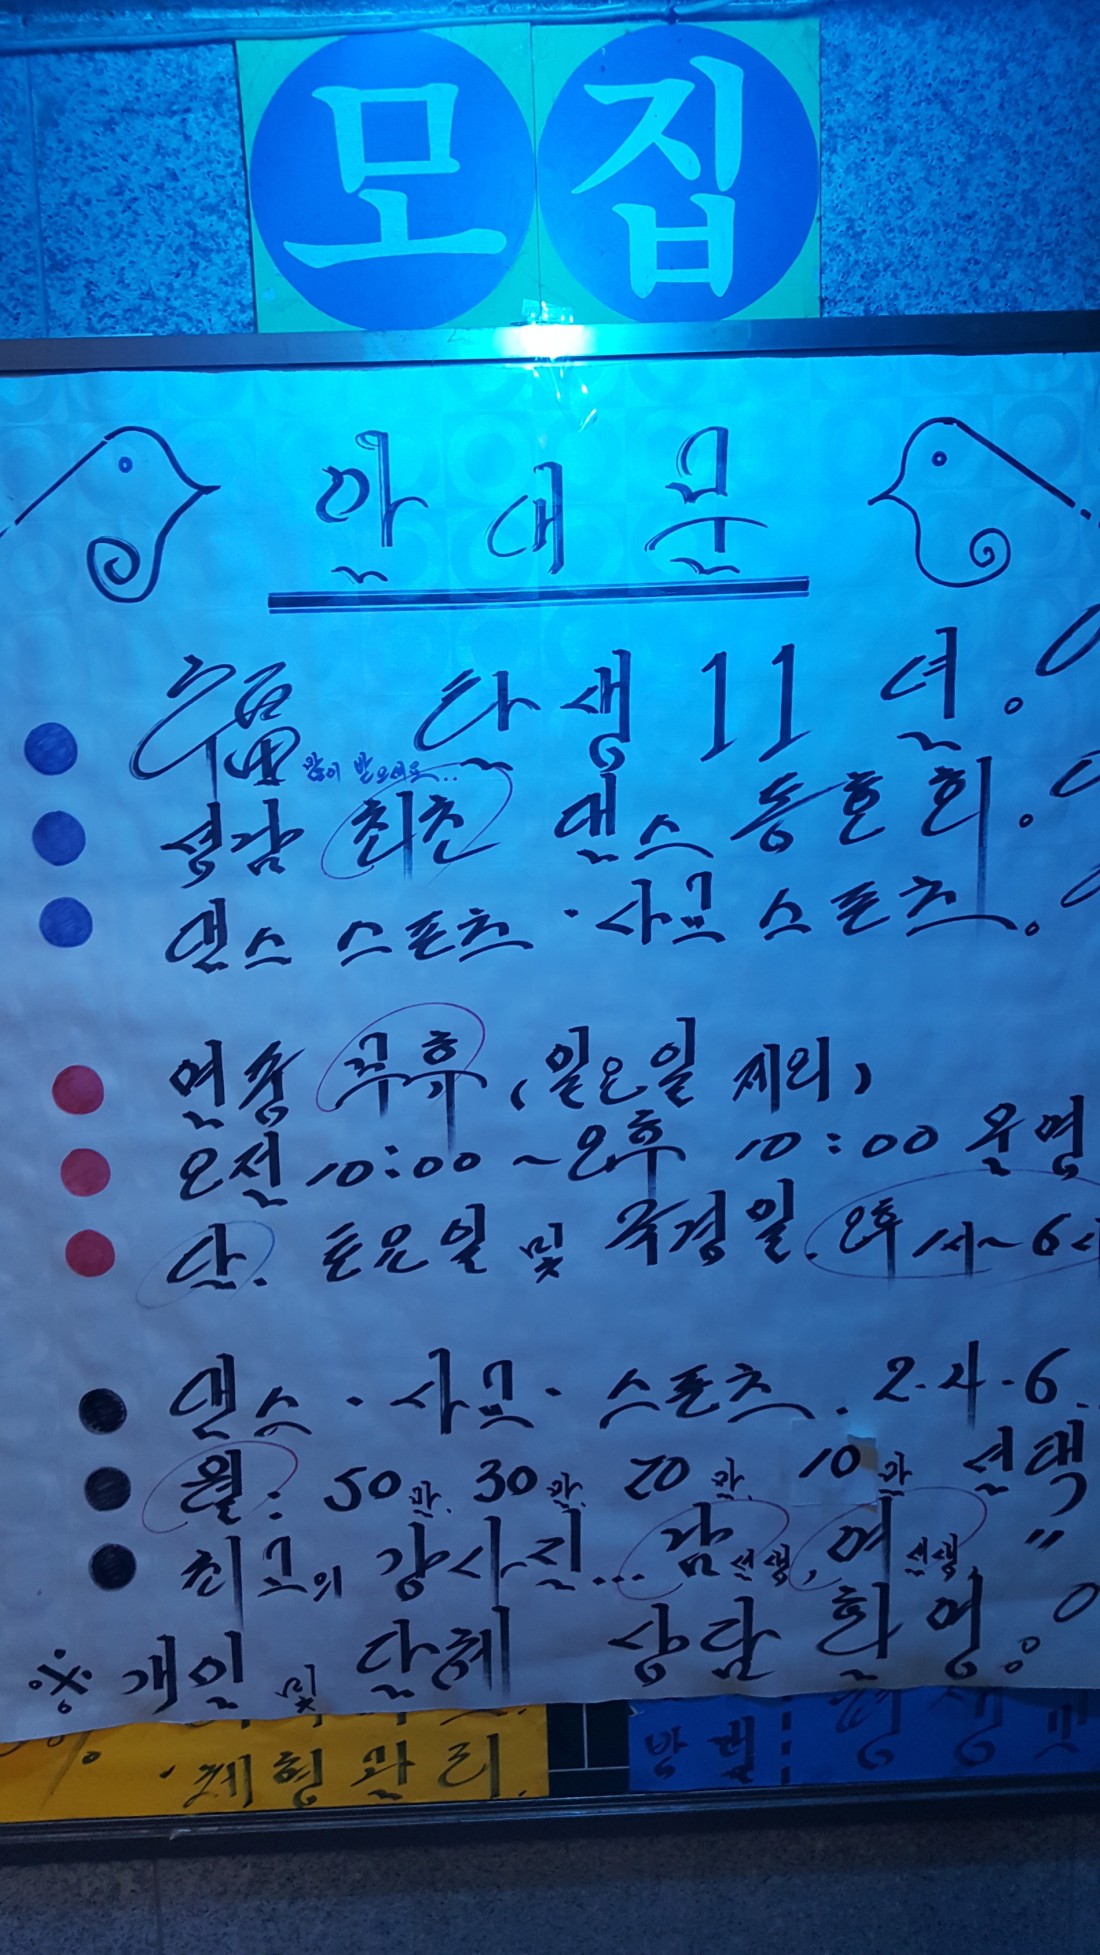 모집
안내문
福 탄생 11 년.
많이 받으세요...
영감 최초 댄스 동호회.
댄스 스포츠 · 사교 스포츠.
연중 무휴 (일요일 제외)
오전 10:00 ~ 오후 10:00 운영
단. 토요일 및 국경일. 오후 1시~6시
댄스 · 사교 · 스포츠. 2·4·6.
월: 50만. 30만. 20만. 10만 선택
최고의 강사진... 남선생, 여선생, "
※ 개인 및 단체 상담 환영.
· 체형관리.
방댄